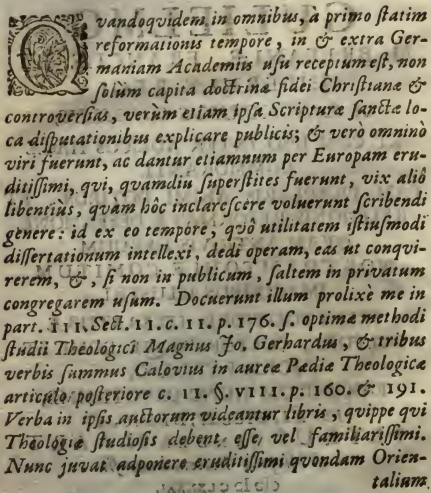 Quandoquidem in omnibus, à primo statim
reformationis tempore, in & extra Ger-
maniam Academiis usu receptum est, non
solùm capita doctrinæ fidei Christianæ &
controversias, verùm etiam ipsa Scripturæ sanctæ lo-
ca disputationibus explicare publicis; & verò omninò
viri fuerunt, ac dantur etiamnum per Europam eru-
ditissimi, qui, quamdiu superstites fuerunt, vix aliô
libentiùs, quàm hôc inclarescere voluerunt scribendi
genere: id ex eo tempore, quô utilitatem istiusmodi
dissertationum intellexi, dedi operam, eas ut conqui-
rerem, &, si non in publicum, saltem in privatum
congregarem usum. Docuerunt illum prolixè me in
part. III. Sect. II. c. II. p. 176. s. optimæ methodi
studii Theologici Magnus Jo. Gerhardus, & tribus
verbis summus Calovius in aureæ Pædiæ Theologicæ
articulo posteriore c. II. §. VIII. p. 160. & 191.
Verba in ipsis auctorum videantur libris, quippe qui
Theologiæ studiosis debent esse vel familiarissimi.
Nunc juvat adponere eruditissimi quondam Orien-
talium